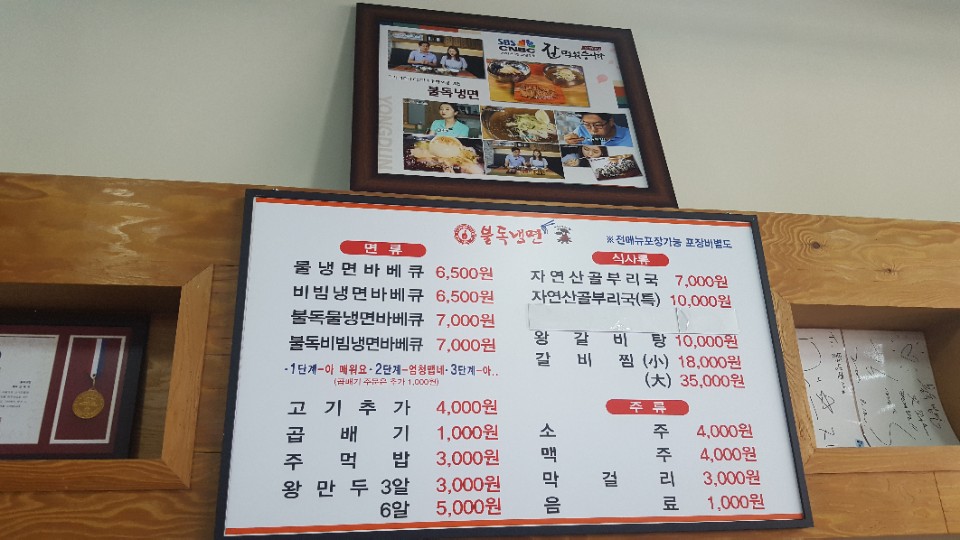 SBS
CNBC
불독냉면
YONGJIN
불독냉면
※전메뉴포장가능 포장비별도
면 류
물냉면바베큐 6,500원
비빔냉면바베큐 6,500원
불독물냉면바베큐 7,000원
불독비빔냉면바베큐 7,000원
·1단계-아 매워요·2단계-엄청맵네·3단계-아..
(곱배기 주문은 추가 1,000원)
고기추가 4,000원
곱배기 1,000원
주먹밥 3,000원
왕만두 3알 3,000원
6알 5,000원
식사류
자연산골부리국 7,000원
자연산골부리국(특) 10,000원
왕갈비탕 10,000원
갈비찜(小) 18,000원
(大) 35,000원
주 류
소주 4,000원
맥주 4,000원
막걸리 3,000원
음료 1,000원